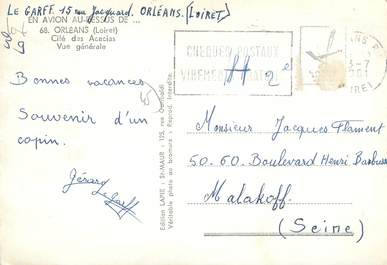 LE GARFF. 15 rue Jacquard. ORLÉANS. (LOIRET)
EN AVION AU-DESSUS DE ...
68. ORLEANS (Loiret)
Cité des Acacias
Vue générale
Bonnes vacances
Souvenir d'un
copain.
Gérard
Le Garff
Edition LAPIE : St-MAUR : 125, rue Garibaldi
Véritable photo au bromure : Reprod. Interdite.
CHEQUES POSTAUX
VIREMENTS
2e
Monsieur Jacques Flament
50-60 Boulevard Henri Barbusse
Malakoff.
(Seine)